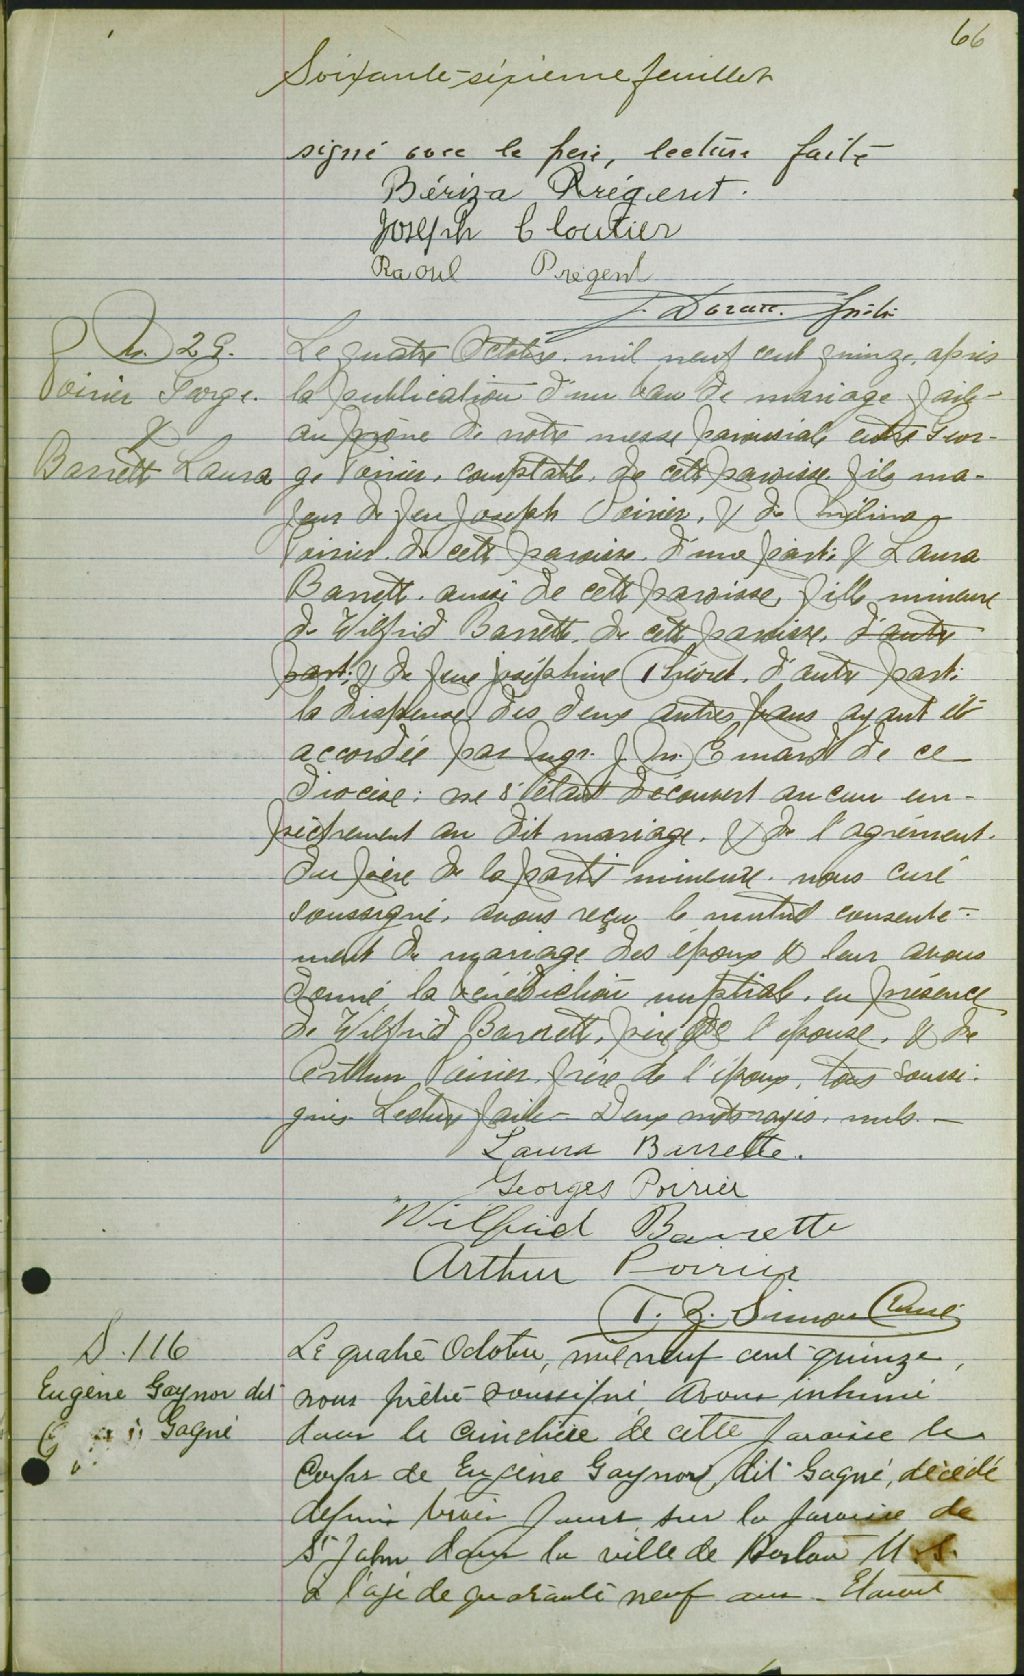 66
Soixante-sixième feuillet
signé avec le père, lecture faite
Bériza Prégent.
Joseph Cloutier
Raoul Prégent
J. Doran. ptre
M. 29.
Poirier George.
&
Barrett Laura
Le quatre Octobre mil neuf cent quinze, après
la publication d'un ban de mariage faite
au prône de notre messe paroissiale entre Geor-
ge Poirier, comptable, de cette paroisse, fils ma-
jeur de feu Joseph Poirier, & de
Poirier de cette paroisse, d'une part; & Laura
Barrett, aussi de cette paroisse, fille mineure
de Wilfrid Barrette, de cette paroisse, d'autre
part; & de feue Joséphine d'autre part;
la dispense des deux autres bans ayant été
accordée par Mgr. J. M. Emard de ce
diocèse; ne s'étant découvert aucun em-
pêchement au dit mariage, & de l'agrément
du père de la partie mineure, nous curé
soussigné, avons reçu le mutuel consente-
ment de mariage des époux & leur avons
donné la bénédiction nuptiale, en présence
de Wilfrid Barrett, père de l'épouse, & de
Arthur Poirier, frère de l'époux, tous soussi-
gnés. Lecture faite - Deux mots rayés, nuls. -
Laura Barrette.
Georges Poirier
Wilfrid Barrette
Arthur Poirier
Simon Curé
S. 116
Eugène Gaynor dit
Gagné
Le quatre Octobre, mil neuf cent quinze,
nous prêtre soussigné avons inhumé
dans le cimetière de cette paroisse le
corps de Eugène Gaynor, dit Gagné, décédé
depuis trois jours sur la paroisse de
St John dans la ville de Boston U.S.
à l'age de quarante neuf ans - Etaient